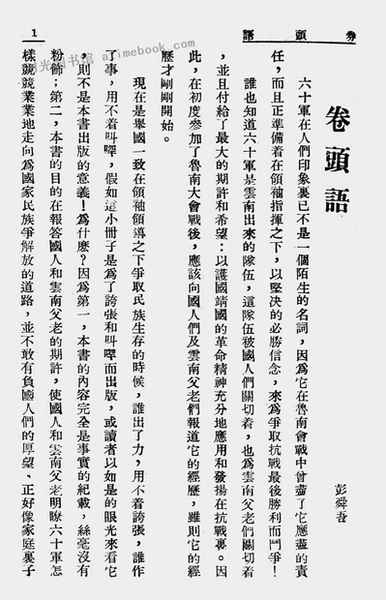 卷頭語
1
光图书馆
卷頭語
彭舜吾
六十軍在人們印象裏已不是一個陌生的名詞,因爲它在魯南會戰中曾盡了它應盡的責
任,而且正準備着在領袖指揮之下,以堅決的必勝信念,來爲爭取抗戰最後勝利而鬥爭!
誰也知道六十軍是雲南出來的隊伍,這隊伍被國人們關切着,也爲雲南父老們關切着
,並且付給了最大的期許和希望:以護國靖國的革命精神充分地應用和發揚在抗戰裏。因
此,在初度參加了魯南大會戰後,應該向國人們及雲南父老們報道它的經歷,雖則它的經
歷才剛剛開始。
現在是舉國一致在領袖領導之下爭取民族生存的時候,誰出了力,用不着誇張,誰作
了事,用不着叫囂,假如這小冊子是爲了誇張和叫囂而出版,或讀者以如是的眼光來看它
,則不是本書出版的意義!爲什麽?因爲第一,本書的內容完全是事實的紀載,絲毫沒有
粉飾;第二,本書的目的在報答國人和雲南父老的期許,使國人和雲南父老明瞭六十軍怎
樣兢兢業業地走向爲國家民族爭解放的道路,並不敢有負國人們的厚望、正好像家庭裏子